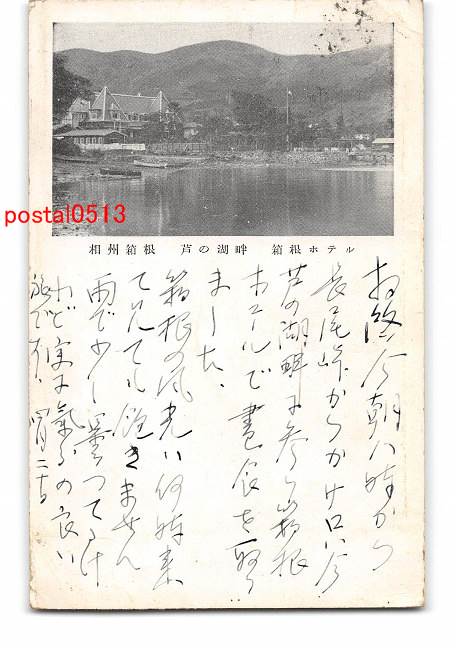 postal0513
相州箱根 芦の湖畔 箱根ホテル
今朝八時から
長尾峠から
芦の湖畔に参り箱根
ホテルで昼食を取り
ました、
箱根の風光は何時来
て見ても飽きません
雨で少し曇つてるけ
れど実に気分の良い
旅です、